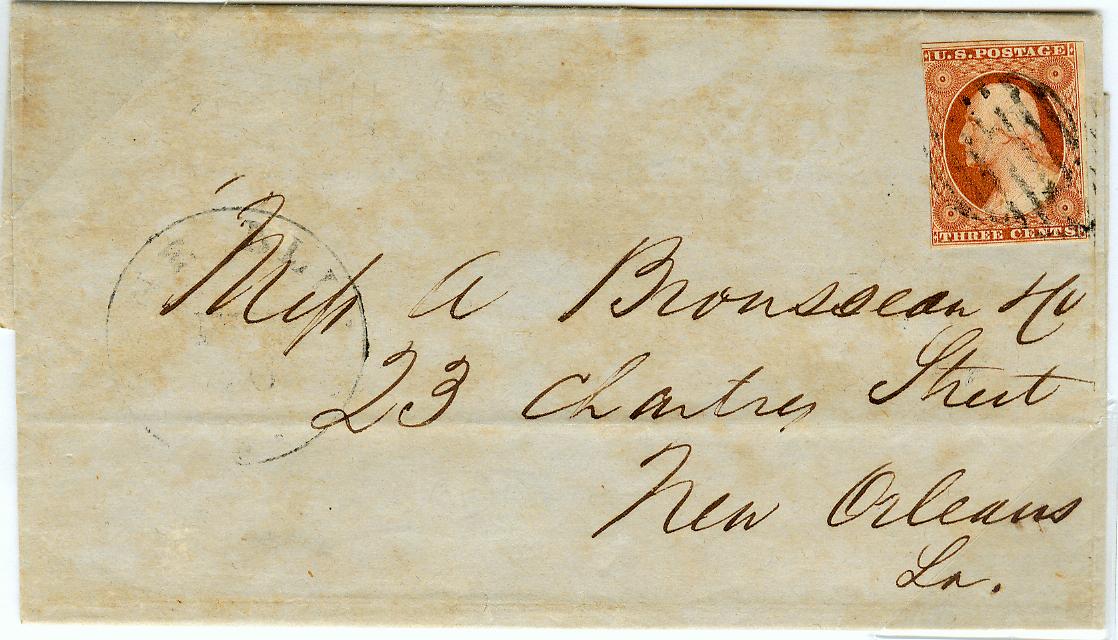 U.S. POSTAGE
THREE CENTS
Mess A Brousseau & Co
23 Chartres Street
New Orleans
La.